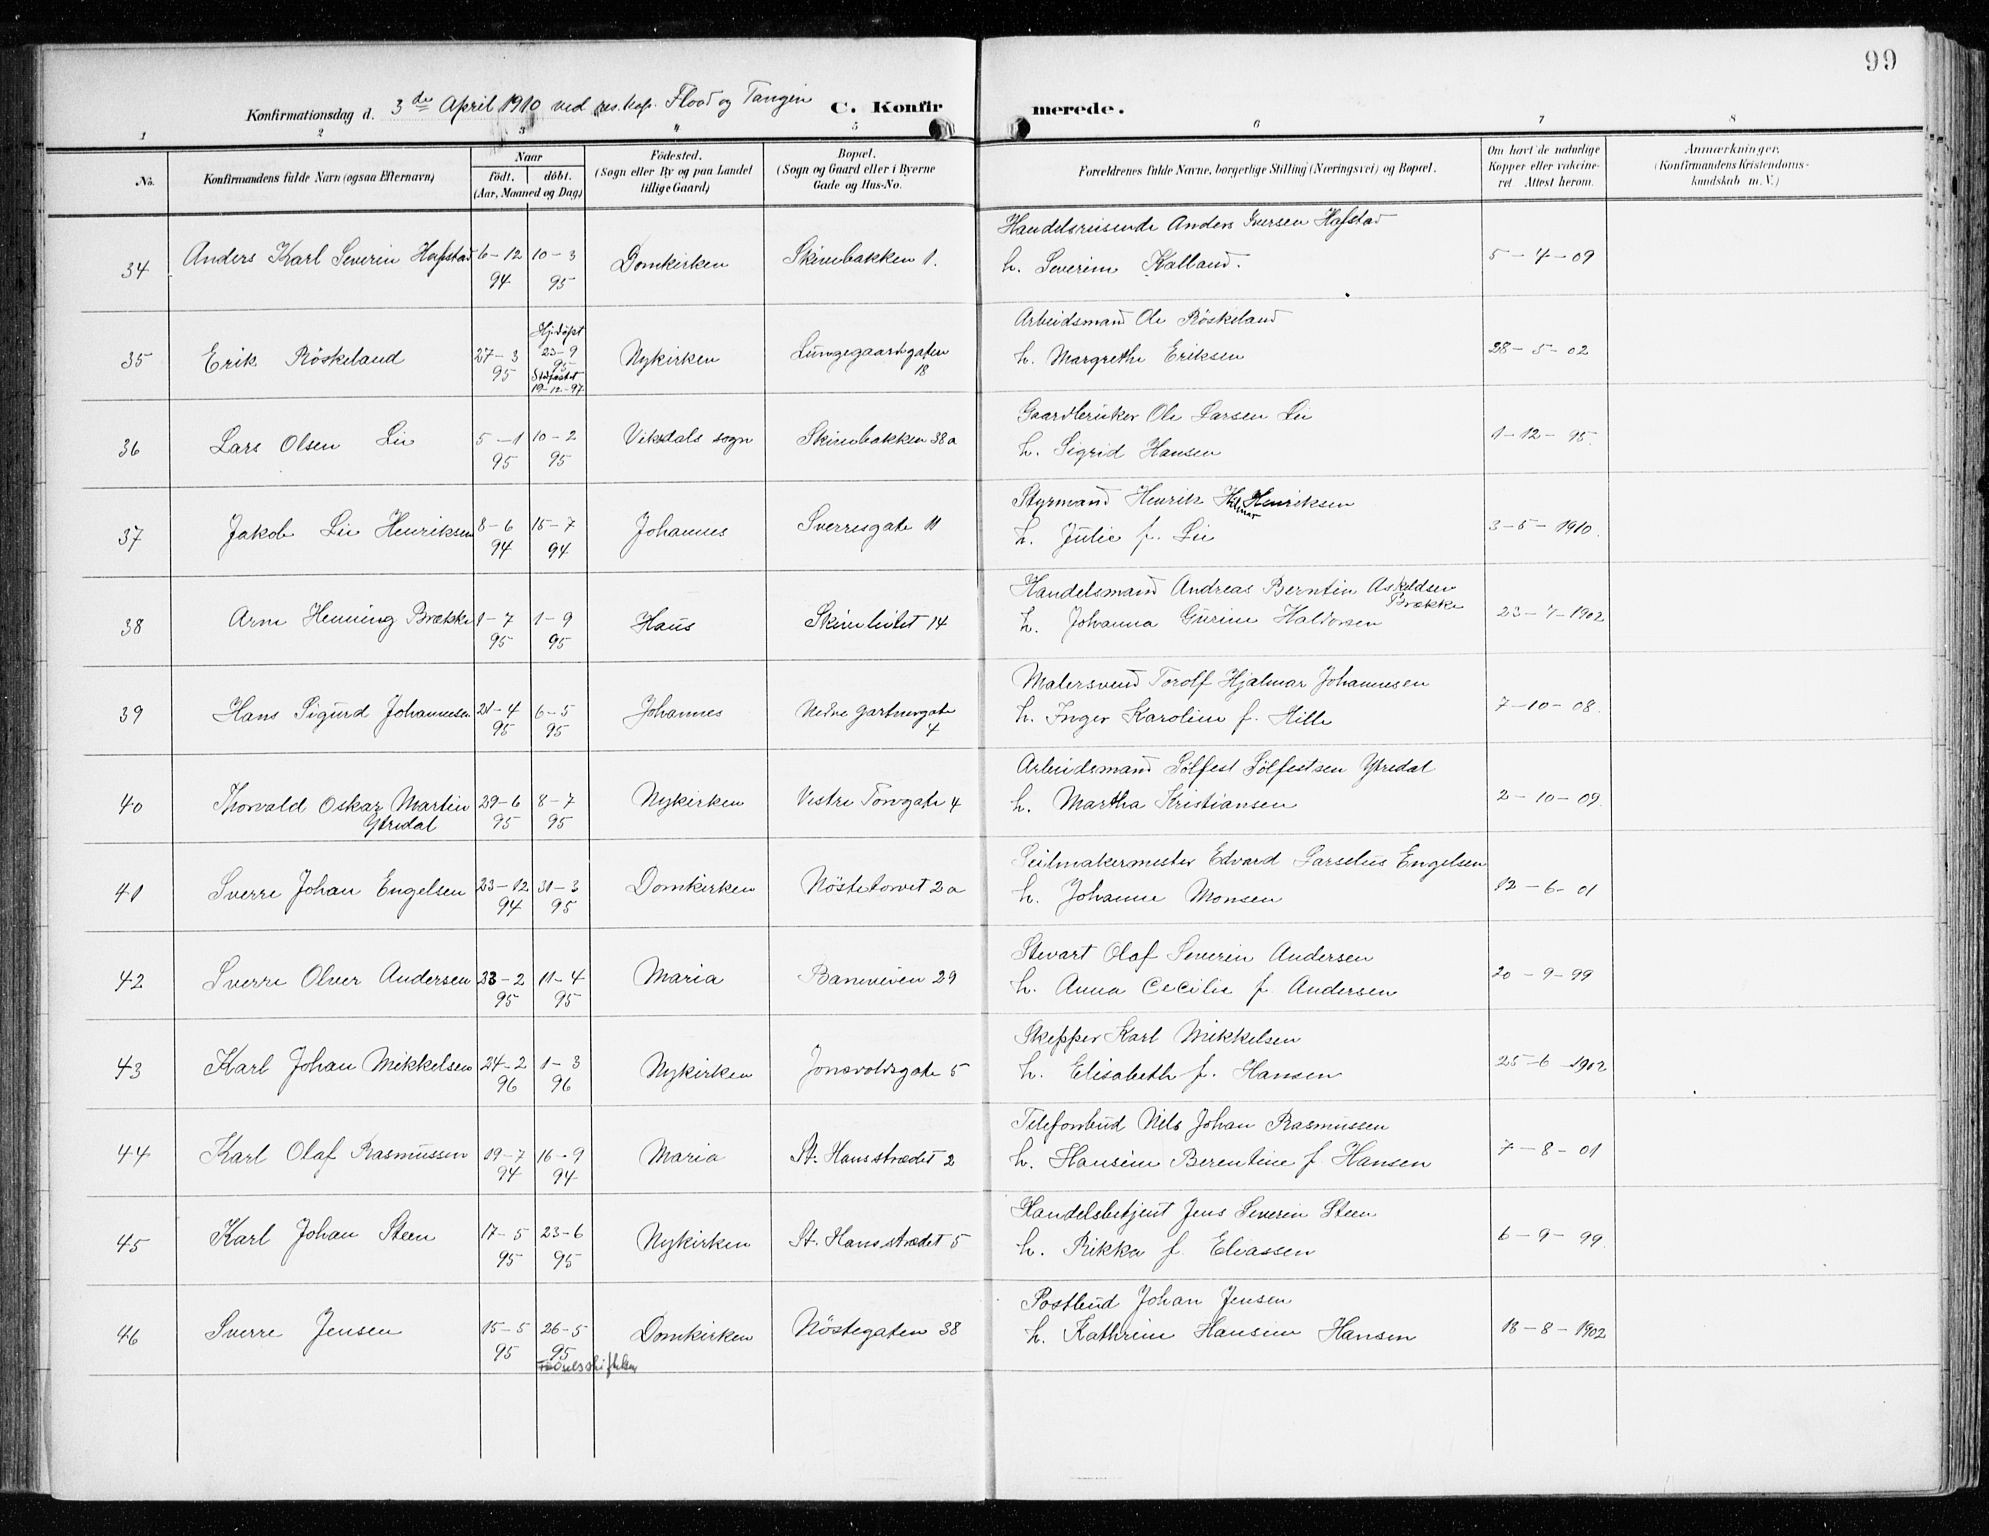 99
Konfirmationsdag d. 3de April 1910 ved res. kap. Flood og Tangen C. Konfirmerede.
1 2 3 4 5 6 7 8
No. Konfirmandens fulde Navn (ogsaa Efternavn) Naar født. døbt. (Aar, Maaned og Dag) Fødested. (Sogn eller By og paa Landet tillige Gaard) Bopæl. (Sogn og Gaard eller i Byerne Gade og Hus-No. Forældrenes fulde Navne, borgerlige Stilling (Næringsvei) og Bopæl. Om havt de naturlige Kopper eller vakcineret. Attest herom. Anmærkninger. (Konfirmandens Kristendomskundskab m. V.)
34 Anders Karl Severin Hafstad 6-12 94 10-3 95 Domkirken Skivebakken 1. Handelsreisende Anders Iversen Hafstad
h. Severine Kalland. 5-4-09
35 Erik Röskeland 27-3 95 Hj.döpt 23-9 95 Stadfæstet 19-12-97 Nykirken Lungegaardsgaten 18 Arbeidsmand Ole Röskeland
h. Margrethe Eriksen 28-5-02
36 Lars Olsen Lie 5-1 95 10-2 95 Viksdals sogn Skivebakken 38a Gaardbruker Ole Larsen Lie
h. Sigrid Hansen 1-12-95.
37 Jakob Lie Henriksen 8-6 94 15-7 94 Johannes Sverresgate 11 Styrmand Henrik Hilmar Henriksen
h. Julie f. Lie 3-5-1910.
38 Arne Henning Brække 1-7 95 1-9 95 Haus Skivebutet 14 Handelsmand Andreas Berntin Askeldsen Brække
h. Johanna Gurine Haldorsen 23-7-1902
39 Hans Sigurd Johannesen 21-4 95 6-5 95 Johannes Nedre Gartnergate 4 Malersvend Torolf Hjalmar Johannesen
h. Inger Karoline f. Hille 7-10-08.
40 Thorvald Oskar Martin Ytredal 29-6 95 8-7 95 Nykirken Vestre Torvgate 4 Arbeidsmand Sölfest Sölfestsen Ytredal
h. Martha Kristiansen 2-10-09.
41 Sverre Johan Engelsen 23-12 94 31-3 95 Domkirken Nöstetorvet 2a Seilmakermester Edvard Larselius Engelsen
h. Johanne Monsen 12-6-01
42 Sverre Olver Andersen 23-2 95 11-4 95 Maria Baneveien 29 Stevart Olaf Severin Andersen
h. Anna Cecilie f. Andersen 20-9-99
43 Karl Johan Mikkelsen 24-2 96 1-3 96 Nykirken Jonsvoldsgate 5 Skepper Karl Mikkelsen
h. Elisabeth f. Hansen 25-6-1902
44 Karl Olaf Rasmussen 19-7 94 16-9 94 Maria St. Hansstrædet 2 Telefonbud Nils Johan Rasmussen
h. Hansine Berentine f. Hansen 7-8-01
45 Karl Johan Steen 17-5 95 23-6 95 Nykirken St. Hansstrædet 5 Handelsbetjent Jens Severin Steen
h. Rikka f. Eliassen 6-9-99.
46 Sverre Jensen 15-5 95 26-5 95 Domkirken Nöstegaten 38 Postbud Johan Jensen
h. Kathrine Hansine Hansen 18-8-1902